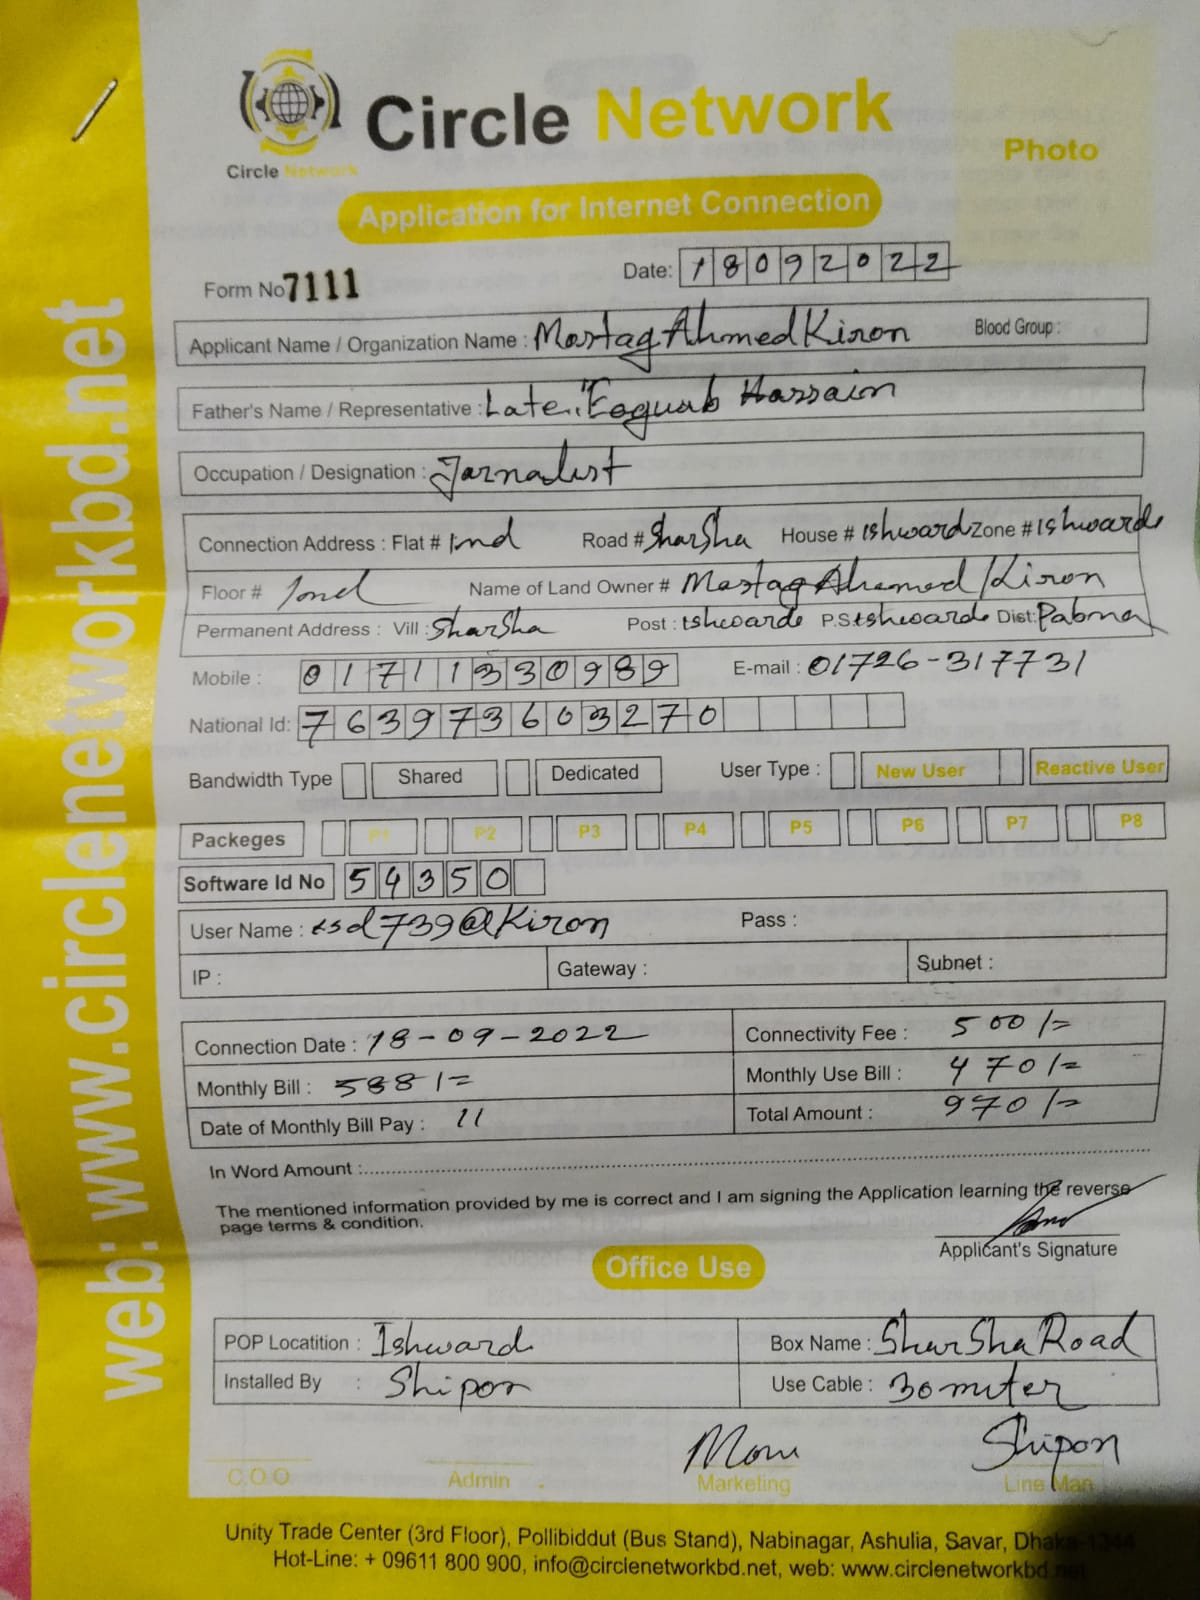 Circle Network
Circle Network
Photo
Application for Internet Connection
Form No 7111
Date: 18092022
Applicant Name / Organization Name : Mostag Ahmed Kiron Blood Group :
Father's Name / Representative : Late. Eoguab Hossain
Occupation / Designation : Jornalist
Connection Address : Flat # 1nd Road # SharSha House # ishward Zone # ishwarde
Floor # 1nd Name of Land Owner # Mostag Ahamed Kiron
Permanent Address : Vill : SharSha Post : ishwarde P.S ishwarde Dist: Pabna
Mobile : 01711330989 E-mail : 01726-317731
National Id: 763973603270
Bandwidth Type Shared Dedicated User Type : New User Reactive User
Packeges P1 P2 P3 P4 P5 P6 P7 P8
Software Id No 54350
User Name : isd739@Kiron Pass :
IP : Gateway : Subnet :
Connection Date : 18-09-2022 Connectivity Fee : 500/=
Monthly Bill : 588/= Monthly Use Bill : 470/=
Date of Monthly Bill Pay : 11 Total Amount : 970/=
In Word Amount :
The mentioned information provided by me is correct and I am signing the Application learning the reverse
page terms & condition.
Applicant's Signature
Office Use
POP Locatition : Ishward Box Name : SharSha Road
Installed By : Shipon Use Cable : 30 miter
Mom Shipon
C.O.O Admin Marketing Line Man
Unity Trade Center (3rd Floor), Pollibiddut (Bus Stand), Nabinagar, Ashulia, Savar, Dhaka-1344
Hot-Line: + 09611 800 900, info@circlenetworkbd.net, web: www.circlenetworkbd.net
web: www.circlenetworkbd.net